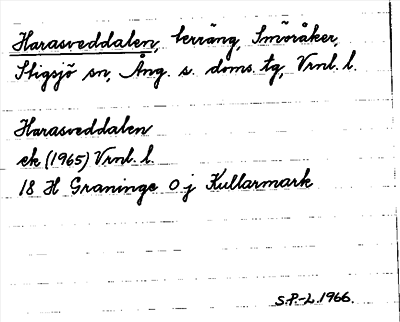 Harasveddalen, terräng, Småråker,
Stigsjö sn, Ång. s. doms. tg, Vrnl. l.
Harasveddalen
ek (1965) Vrnl. l.
18 H Graninge 0 j Kullarmark
S.P-L. 1966.